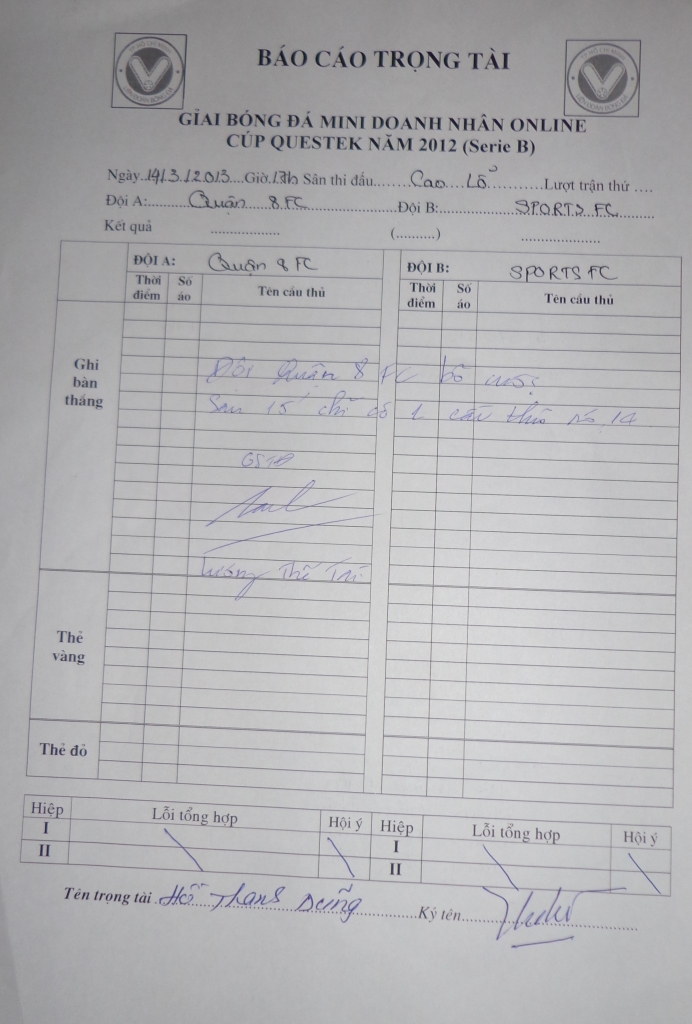 BÁO CÁO TRỌNG TÀI
GIẢI BÓNG ĐÁ MINI DOANH NHÂN ONLINE
CÚP QUESTEK NĂM 2012 (Serie B)
Ngày 19/3/2013 Giờ 18h Sân thi đấu Cao Lỗ Lượt trận thứ ....
Đội A: Quận 8 FC Đội B: SPORTS FC
Kết quả .................. (..........) ....................
ĐỘI A: Quận 8 FC ĐỘI B: SPORTS FC
Thời điểm Số áo Tên cầu thủ Thời điểm Số áo Tên cầu thủ
Ghi bàn thắng
Đội Quận 8 FC bỏ cuộc
Sau 15' chỉ có 1 cầu thủ 14
GSTĐ
Lương Thế Tài
Thẻ vàng
Thẻ đỏ
Hiệp Lỗi tổng hợp Hội ý Hiệp Lỗi tổng hợp Hội ý
I I
II II
Tên trọng tài Hồ Thanh Dũng Ký tên